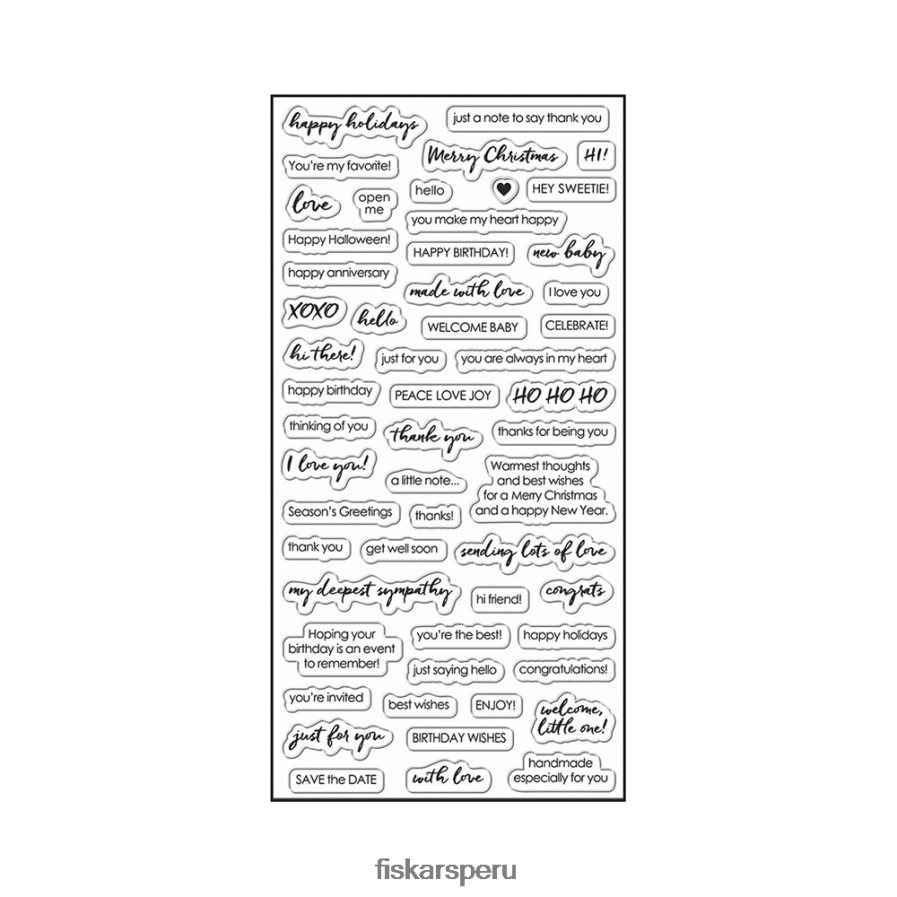 happy holidays
just a note to say thank you
Merry Christmas
HI!
You're my favorite!
hello
HEY SWEETIE!
love
open
me
you make my heart happy
Happy Halloween!
HAPPY BIRTHDAY!
new baby
happy anniversary
made with love
I love you
XOXO
hello
WELCOME BABY
CELEBRATE!
hi there!
just for you
you are always in my heart
happy birthday
PEACE LOVE JOY
HO HO HO
thinking of you
thank you
thanks for being you
I love you!
a little note...
Warmest thoughts
and best wishes
for a Merry Christmas
and a happy New Year.
Season's Greetings
thanks!
thank you
get well soon
sending lots of love
my deepest sympathy
hi friend!
congrats
Hoping your
birthday is an event
to remember!
you're the best!
happy holidays
just saying hello
congratulations!
you're invited
best wishes
ENJOY!
welcome,
little one!
just for you
BIRTHDAY WISHES
handmade
especially for you
SAVE the DATE
with love
fiskarsperu